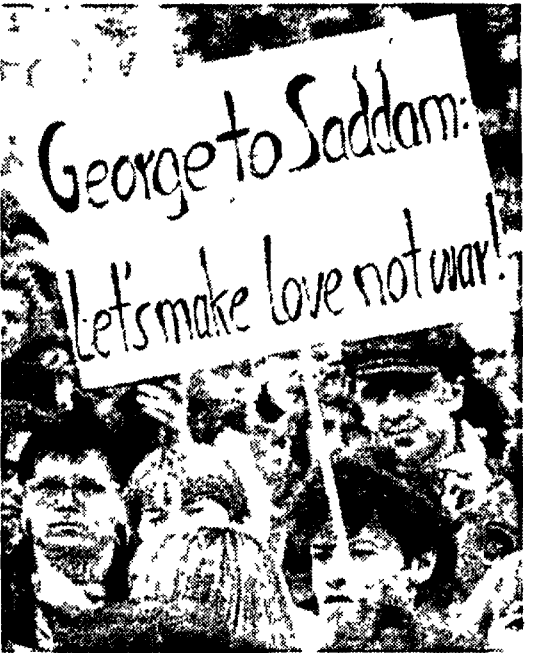 George to Saddam:
Let's make love not war!